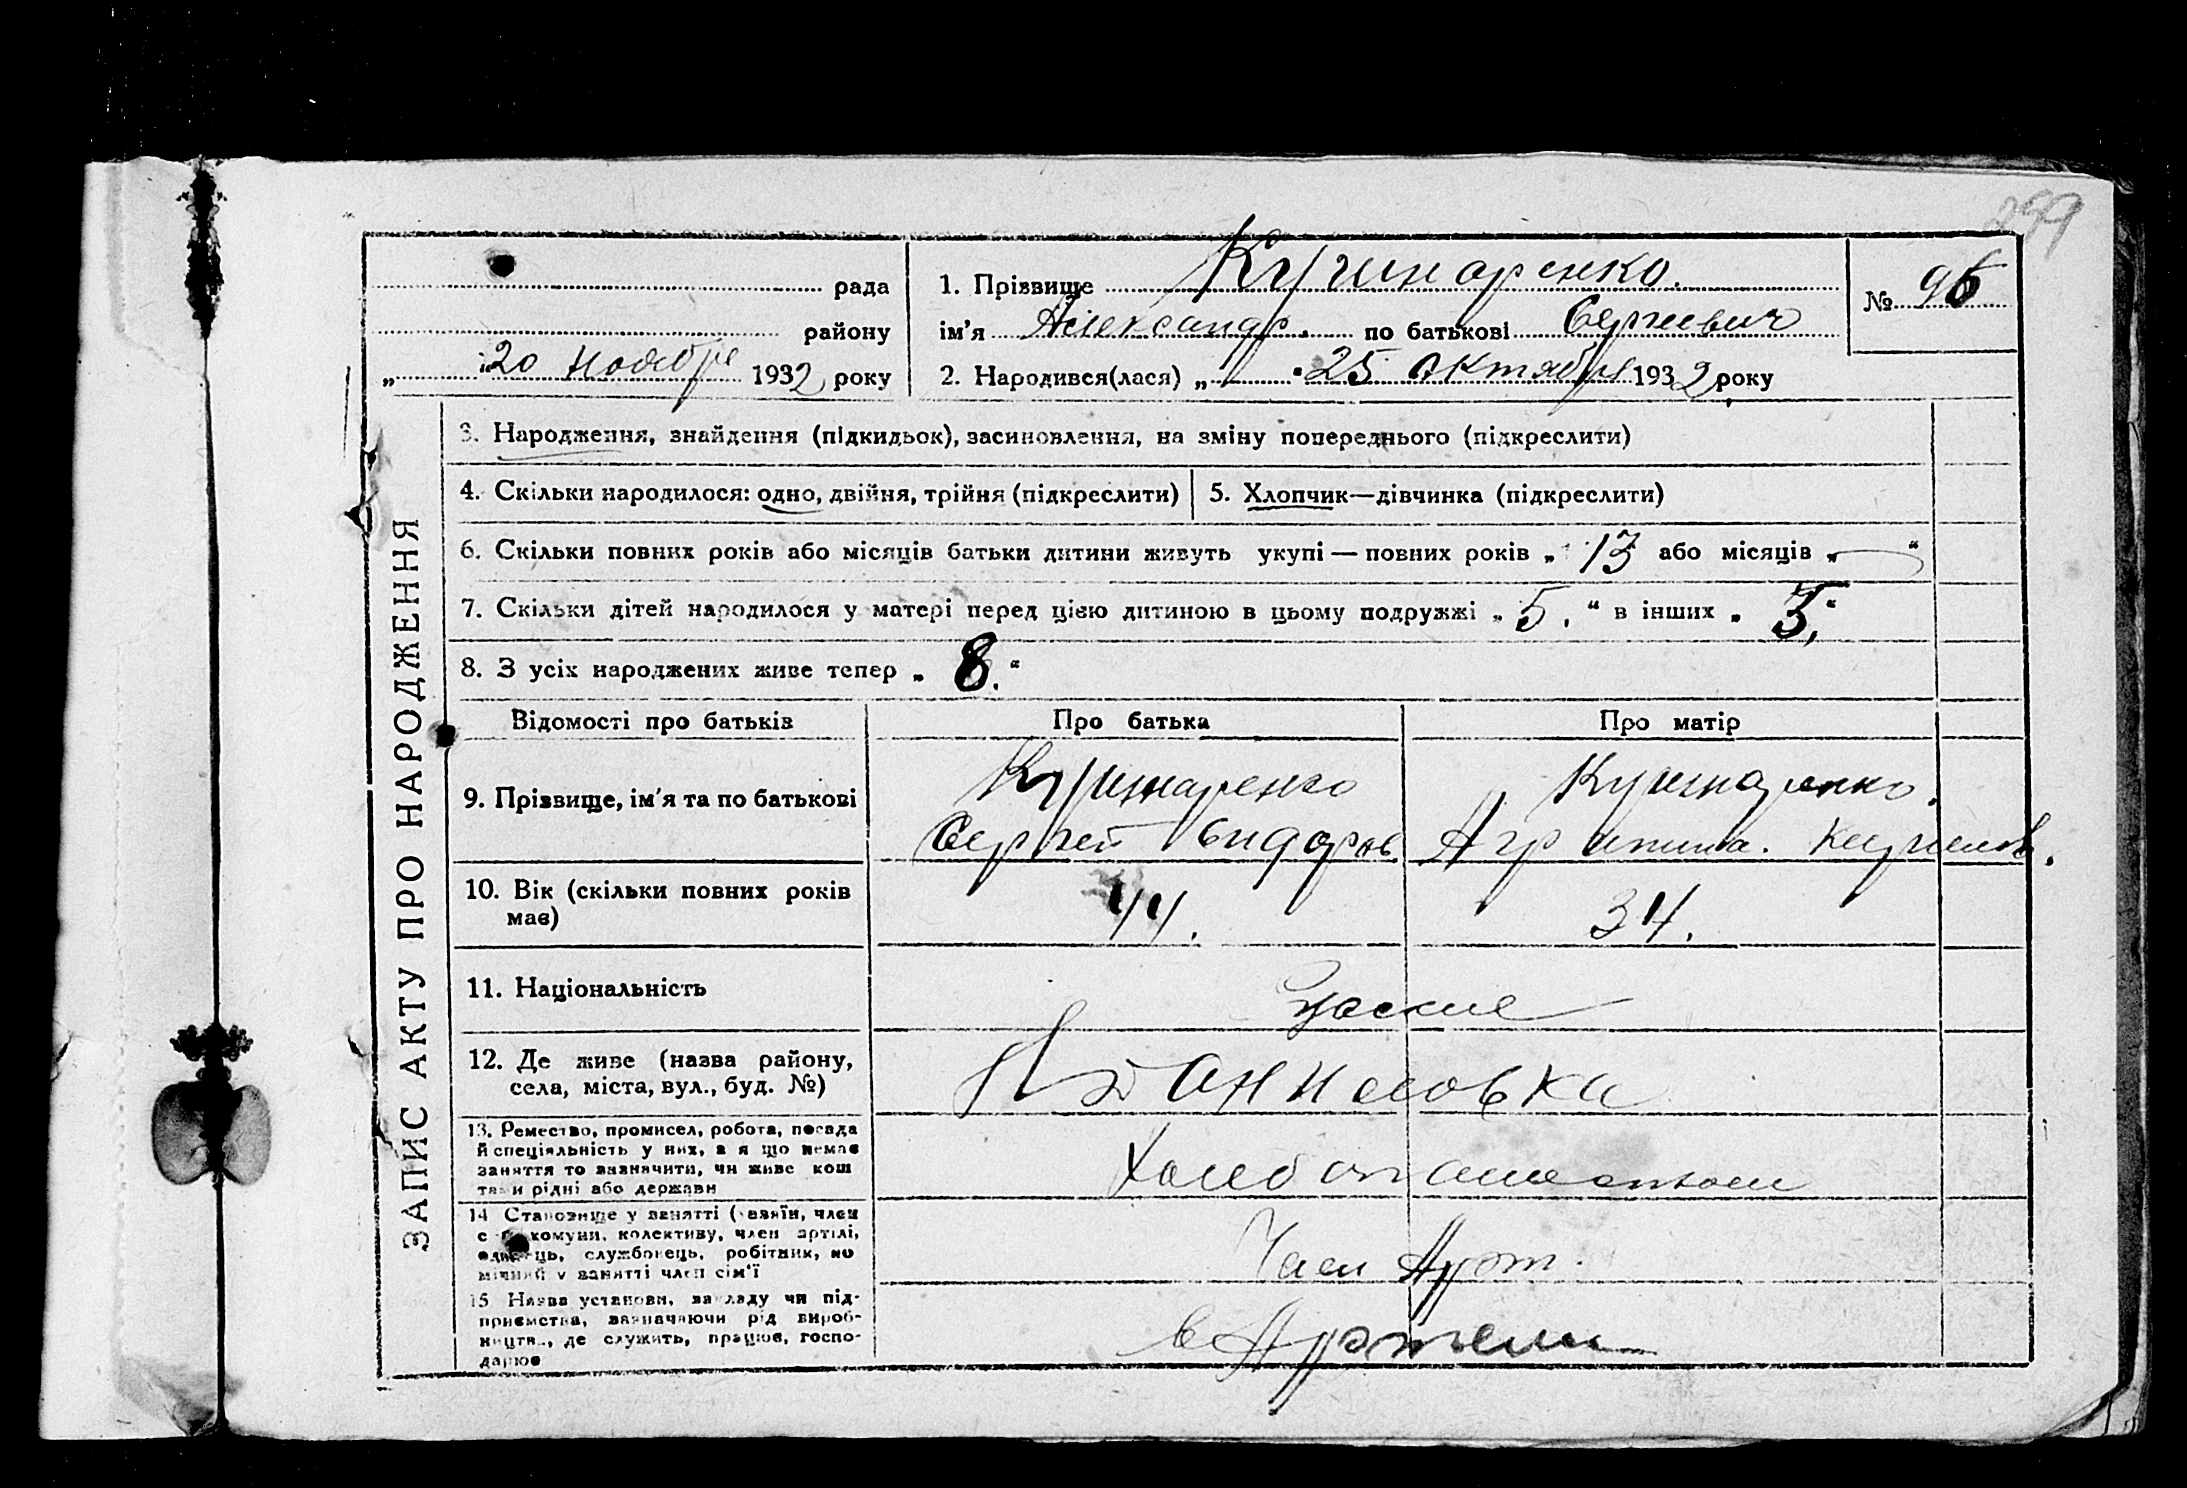 299
рада
1. Прізвище Кушнаренко.
№ 96
району
ім'я Александр. по батькові Сергиевич
„ 20 Ноября 1932 року
2. Народився(лася) „ 25 Октября 1932 року
ЗАПИС АКТУ ПРО НАРОДЖЕННЯ
3. Народження, знайдення (підкидьок), засиновлення, на зміну попереднього (підкреслити)
4. Скільки народилося: одно, двійня, трійня (підкреслити)
5. Хлопчик—дівчинка (підкреслити)
6. Скільки повних років або місяців батьки дитини живуть укупі — повних років „ 13 або місяців „ — “
7. Скільки дітей народилося у матері перед цією дитиною в цьому подружжі „ 5. “ в інших „ 3. “
8. З усіх народжених живе тепер „ 8. “
Відомості про батьків
Про батька
Про матір
9. Прізвище, ім'я та по батькові
Кушнаренко
Сергей Сидоров
Кушнаренко.
10. Вік (скільки повних років має)
44.
34.
11. Національність
12. Де живе (назва району,
села, міста, вул., буд. №)
13. Ремество, промисел, робота, посада
й спеціяльність у них, а я що немає
заняття то визначити, чи живе кош
та и рідні або держави
Хлебопашеством
14 Становище у занятті (хазяїн, член
с г. комуни, колективу, член артілі,
одинець, службовець, робітник, по
мічний у занятті член сім'ї
Член Арт.
15 Назва установи, закладу чи під-
приємства, зазначаючи рід вироб-
ництва, де служить, працює, госпо-
дарює
в Артели